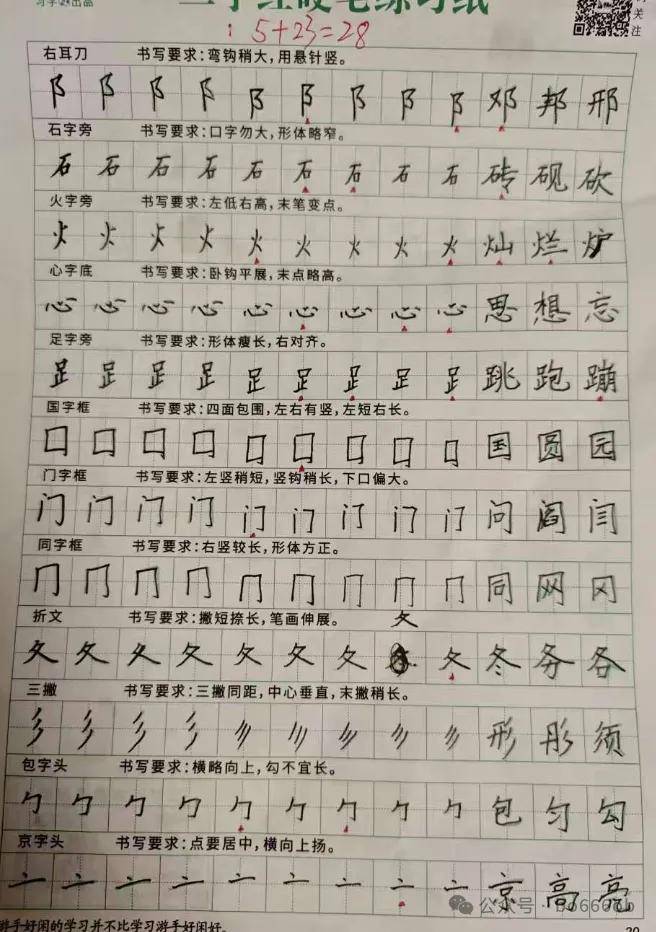 出品
硬笔练习纸
关注
5+23=28
右耳刀 书写要求:弯钩稍大,用悬针竖。
阝 阝 阝 阝 阝 阝 阝 阝 阝 邓 邦 邢
石字旁 书写要求:口字勿大,形体略窄。
石 石 石 石 石 石 石 石 石 砖 砚 砍
火字旁 书写要求:左低右高,末笔变点。
火 火 火 火 火 火 火 火 火 灿 烂 炉
心字底 书写要求:卧钩平展,末点略高。
心 心 心 心 心 心 心 心 心 思 想 忘
足字旁 书写要求:形体瘦长,右对齐。
𧾷 𧾷 𧾷 𧾷 𧾷 𧾷 𧾷 𧾷 𧾷 跳 跑 蹦
国字框 书写要求:四面包围,左右有竖,左短右长。
囗 囗 囗 囗 囗 囗 囗 囗 囗 国 圆 园
门字框 书写要求:左竖稍短,竖钩稍长,下口偏大。
门 门 门 门 门 门 门 门 门 问 阎 闫
同字框 书写要求:右竖较长,形体方正。
冂 冂 冂 冂 冂 冂 冂 冂 冂 同 网 冈
折文 书写要求:撇短捺长,笔画伸展。 夂
夂 夂 夂 夂 夂 夂 夂 夂 冬 务 各
三撇 书写要求:三撇同距,中心垂直,末撇稍长。
彡 彡 彡 彡 彡 彡 彡 彡 彡 形 彤 须
包字头 书写要求:横略向上,勾不宜长。
勹 勹 勹 勹 勹 勹 勹 勹 勹 包 匀 勾
京字头 书写要求:点要居中,横向上扬。
亠 亠 亠 亠 亠 亠 亠 亠 亠 京 高 亮
公众号
游手好闲的学习并不比学习游手好闲好。
20